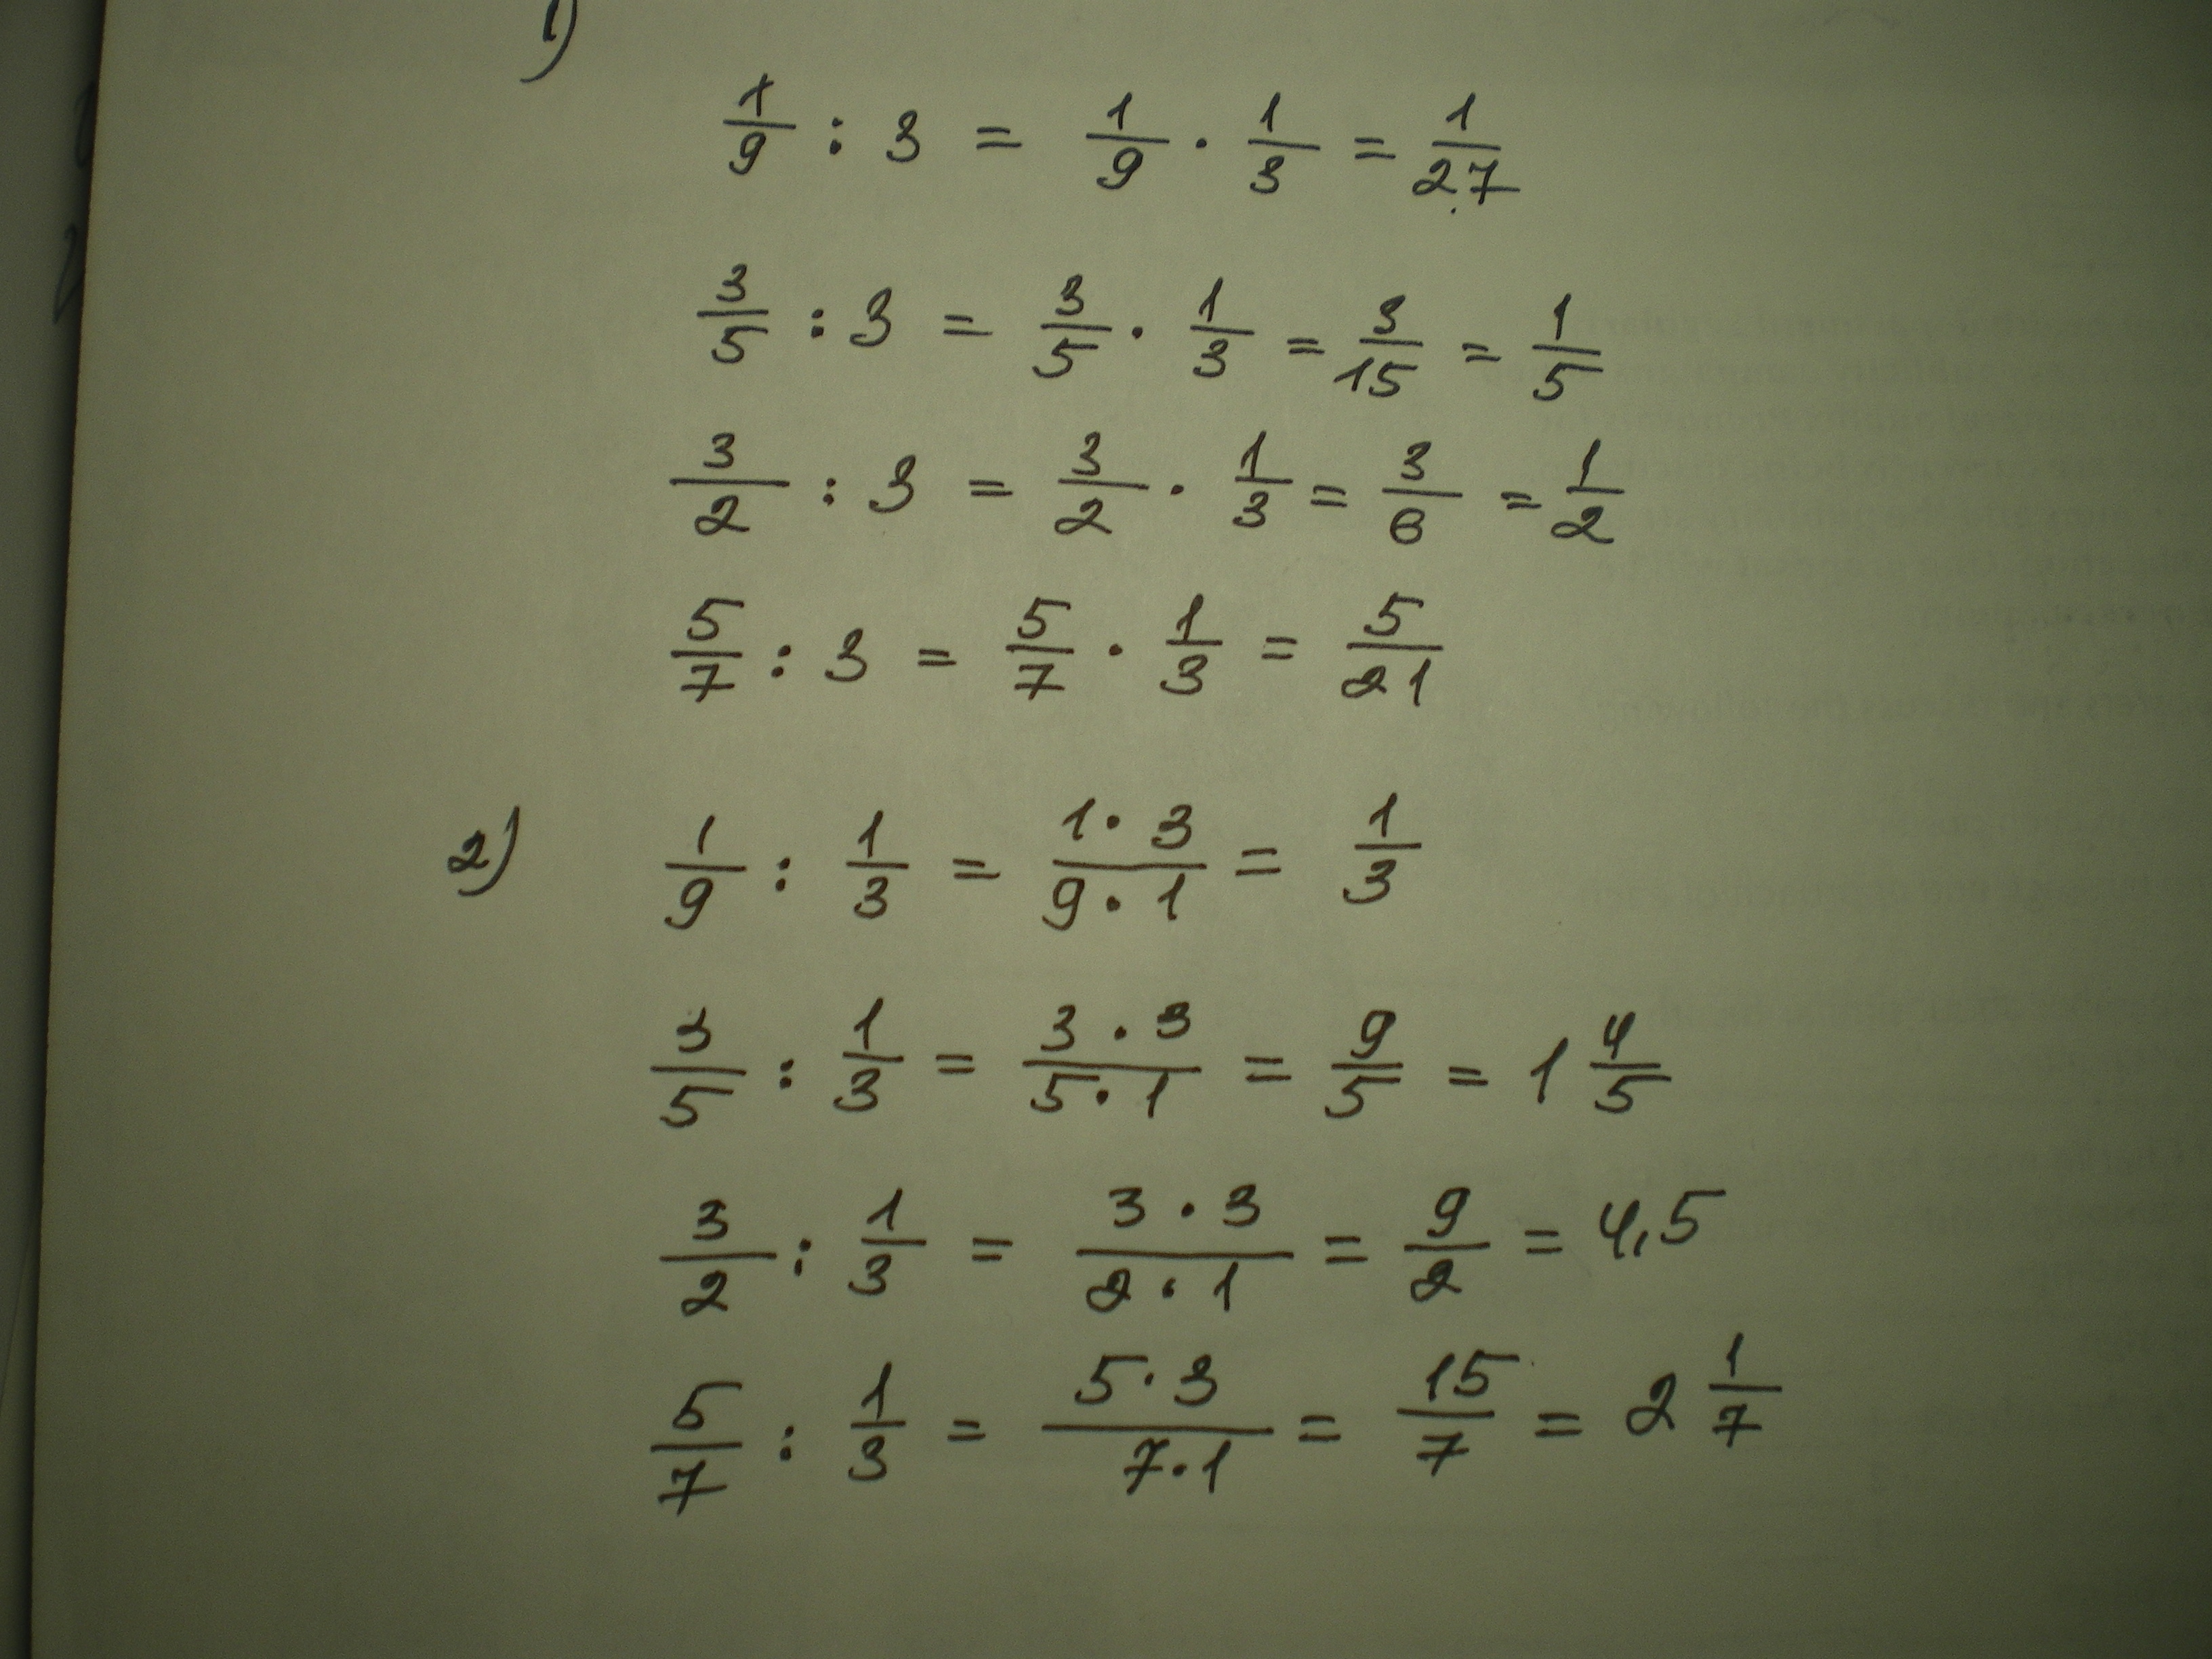 1)
1/9 : 3 = 1/9 · 1/3 = 1/27
3/5 : 3 = 3/5 · 1/3 = 3/15 = 1/5
3/2 : 3 = 3/2 · 1/3 = 3/6 = 1/2
5/7 : 3 = 5/7 · 1/3 = 5/21
2) 1/9 : 1/3 = 1·3/9·1 = 1/3
3/5 : 1/3 = 3·3/5·1 = 9/5 = 1 4/5
3/2 : 1/3 = 3·3/2·1 = 9/2 = 4,5
5/7 : 1/3 = 5·3/7·1 = 15/7 = 2 1/7